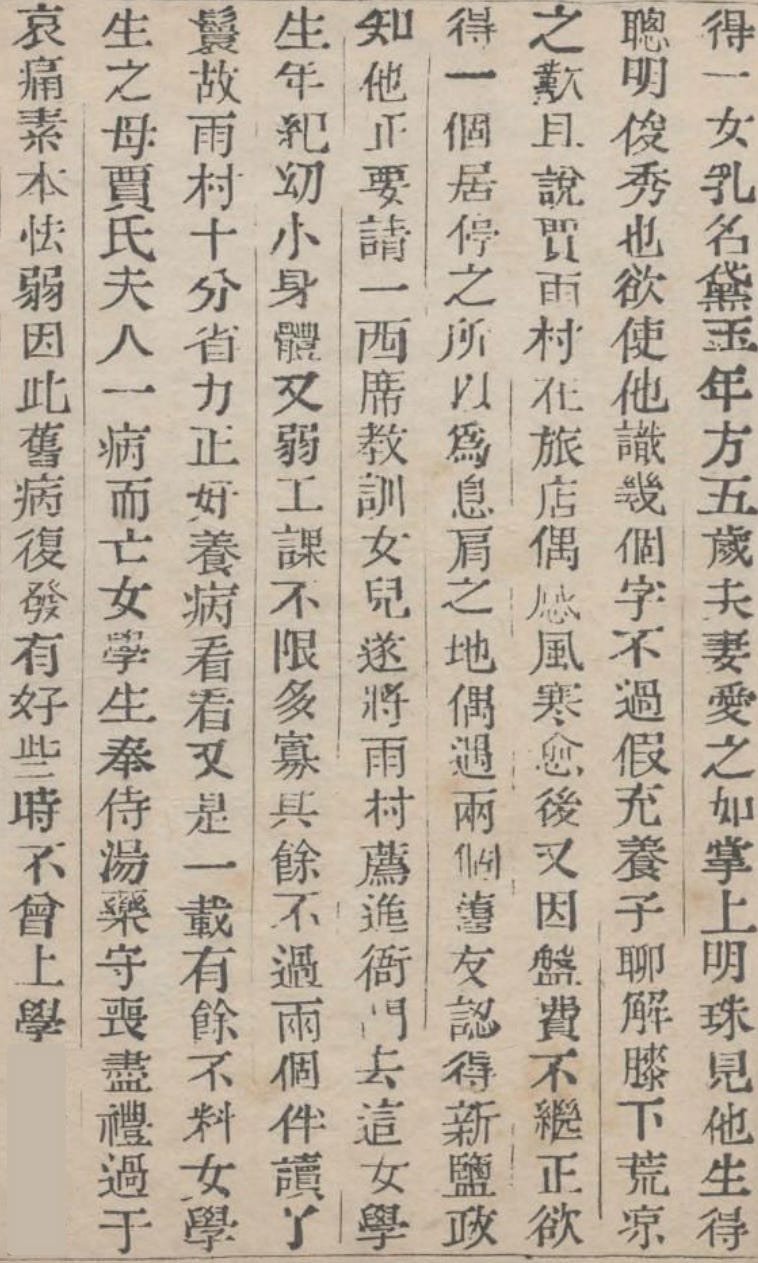 得一女乳名黛玉年方五歲夫妻愛之如掌上明珠見他生得
聰明俊秀也欲使他識幾個字不過假充養子聊解膝下荒凉
之歎且說賈雨村在旅店偶感風寒愈後又因盤費不繼正欲
得一個居停之所以爲息肩之地偶遇兩個舊友認得新鹽政
知他正要請一西席教訓女兒遂將雨村薦進衙門去這女學
生年紀幼小身體又弱工課不限多寡其餘不過兩個伴讀丫
鬟故雨村十分省力正好養病看看又是一載有餘不料女學
生之母賈氏夫人一病而亡女學生奉侍湯藥守喪盡禮過于
哀痛素本怯弱因此舊病復發有好些時不曾上學